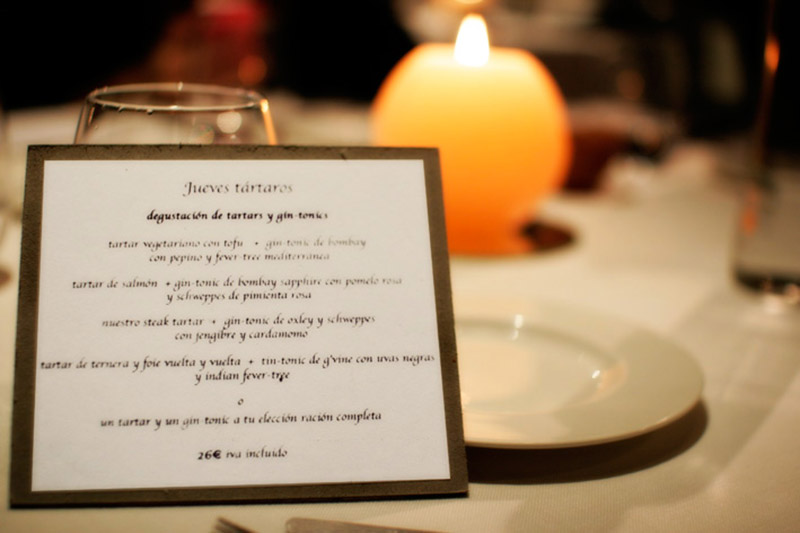 Jueves tártaros
degustación de tartars y gin-tonics
tartar vegetariano con tofu + gin-tonic de bombay
con pepino y fever-tree mediterránea
tartar de salmón + gin-tonic de bombay sapphire con pomelo rosa
y schweppes de pimienta rosa
nuestro steak tartar + gin-tonic de oxley y schweppes
con jengibre y cardamomo
tartar de ternera y foie vuelta y vuelta + tin-tonic de g'vine con uvas negras
y indian fever-tree
o
un tartar y un gin-tonic a tu elección ración completa
26€ iva incluido